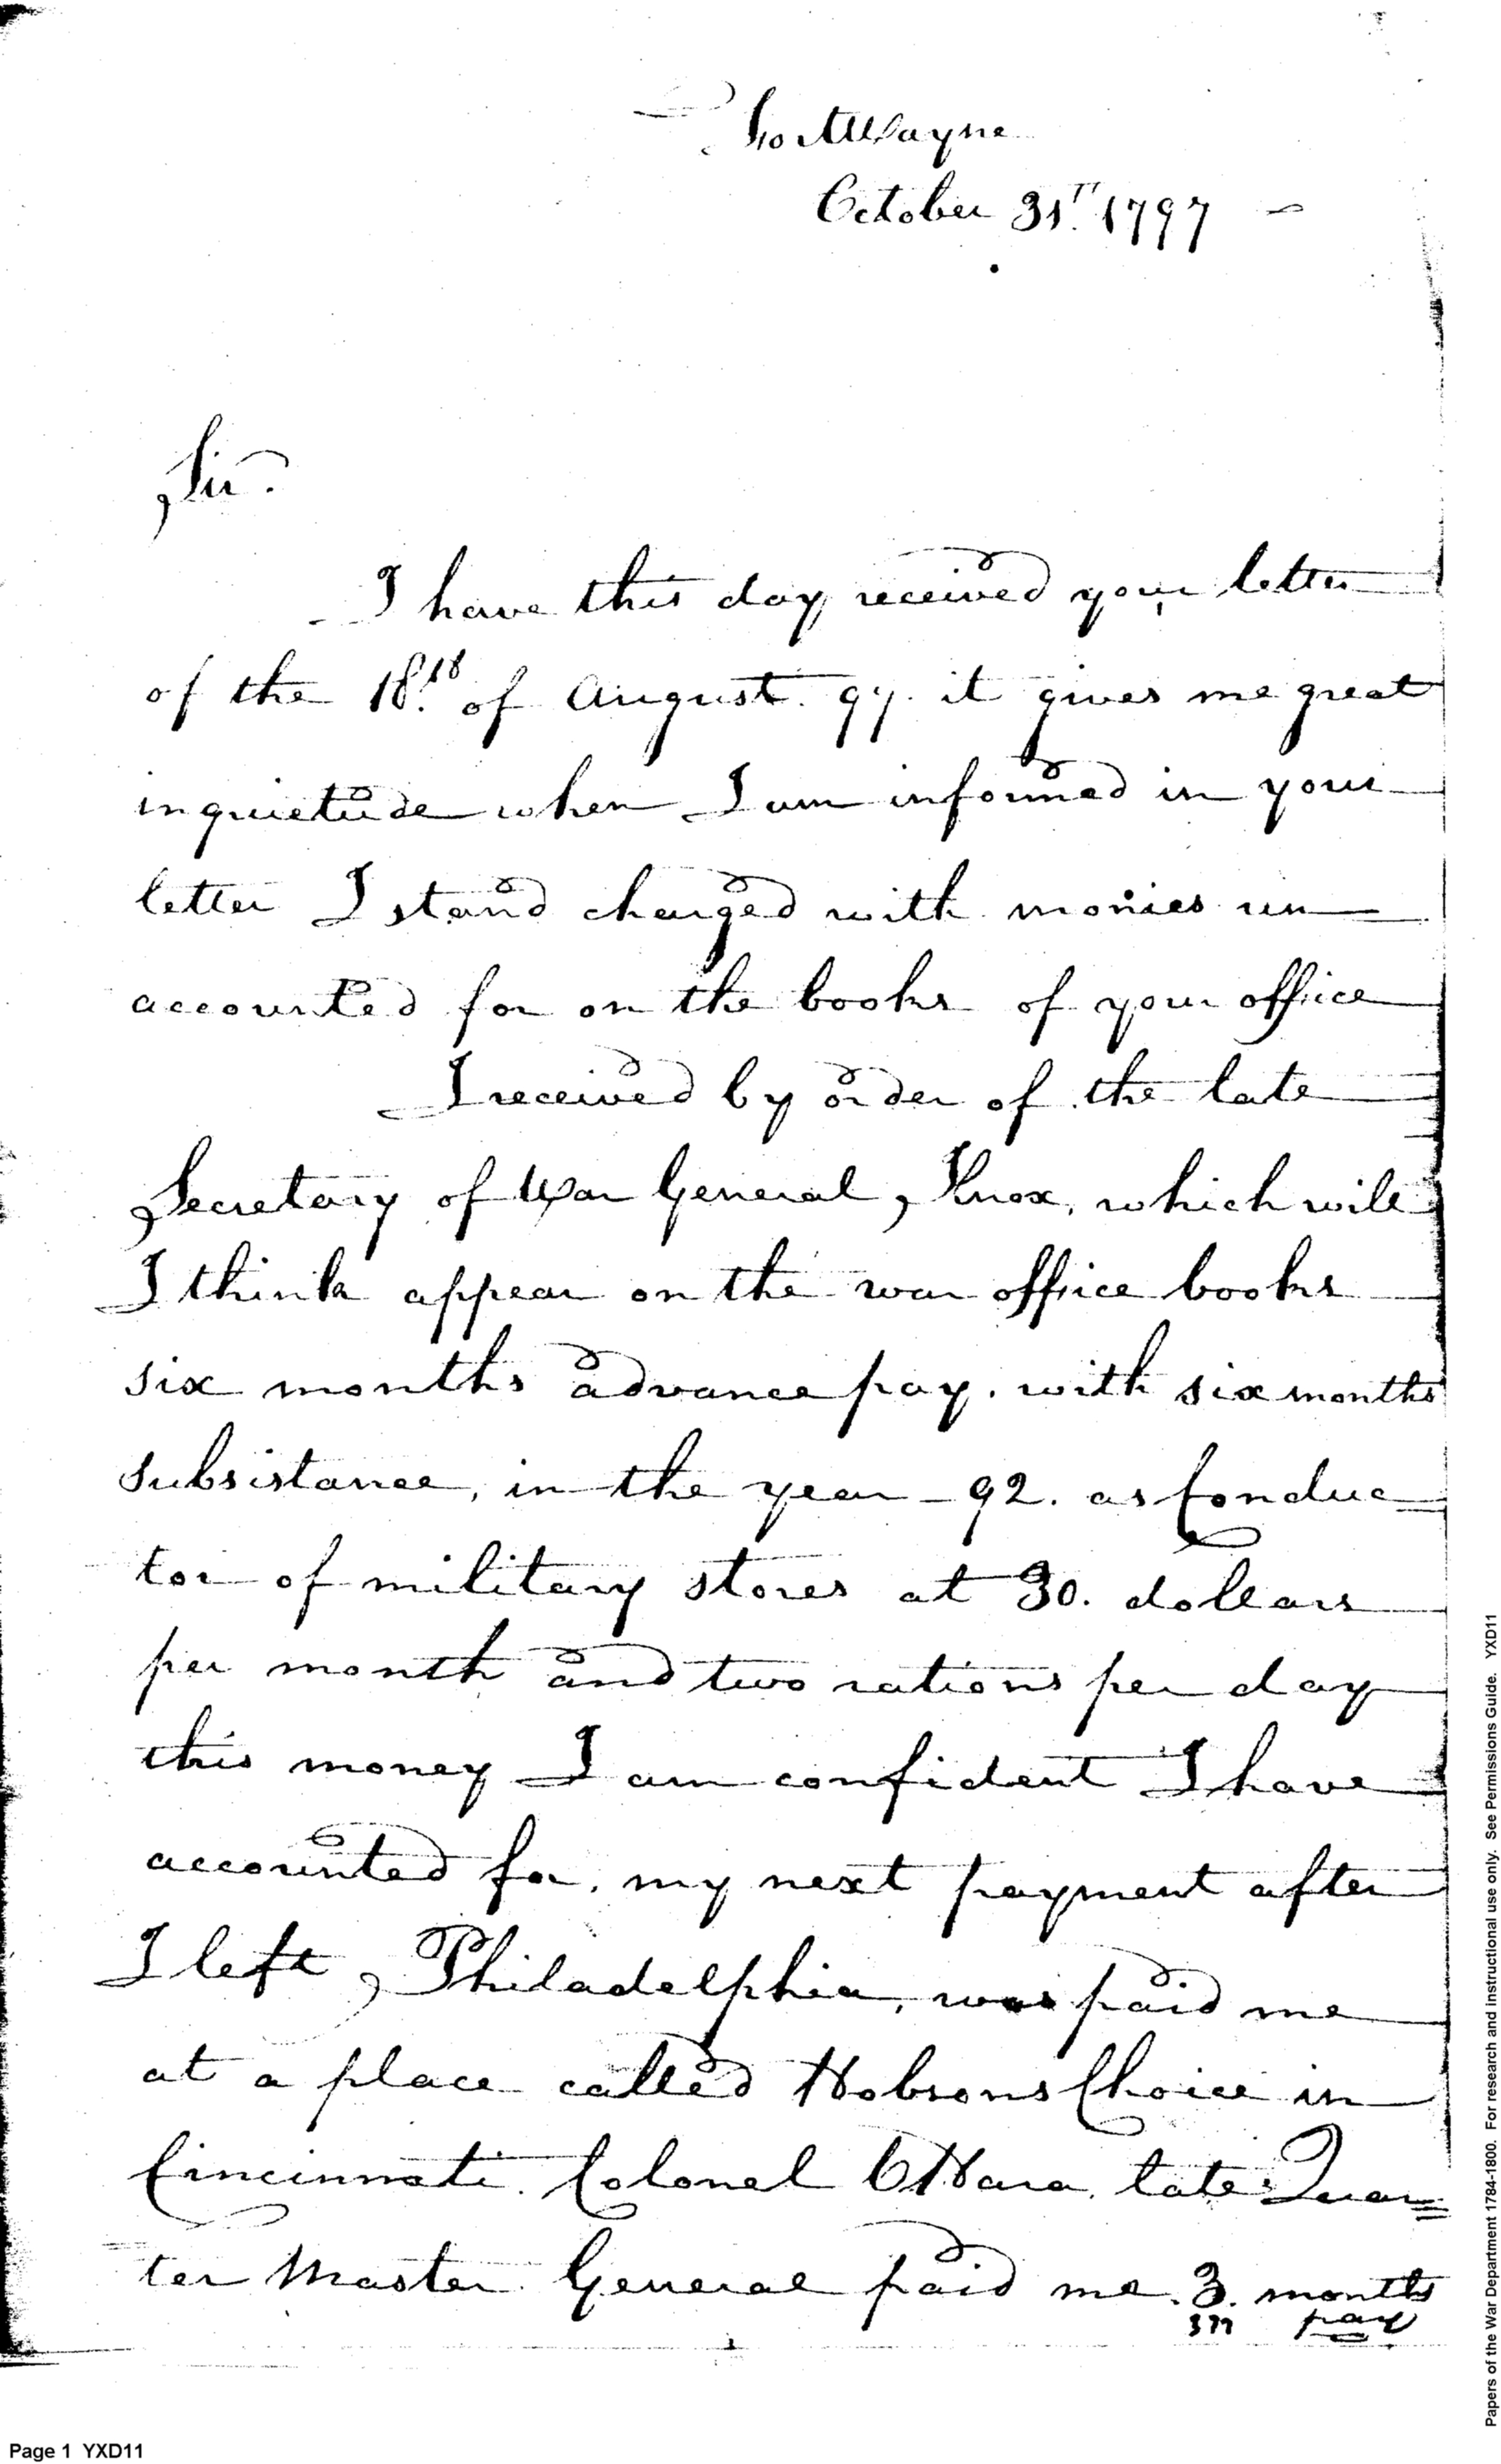 Fort Wayne
October 31st. 1797
Sir.
I have this day received your letter
of the 18th of August. 97. it gives me great
inquietude when I am informed in your
letter I stand charged with monies un
accounted for on the books of your office
I received by order of the late
Secretary of War General, Knox, which will
I think appear on the war office books
six months advance pay. with six months
subsistance, in the year - 92. as Conduc
tor of military stores at 30. dollars
per month and two rations per day
this money I am confident I have
accounted for. my next payment after
I left, Philadelphia, was paid me
at a place called Hobsons Choice in
Cincinnati. Colonel OHara, late Quar=
ter Master General paid me. 3. months
377 pay
Page 1 YXD11
Papers of the War Department 1784-1800. For research and instructional use only. See Permissions Guide. YXD11